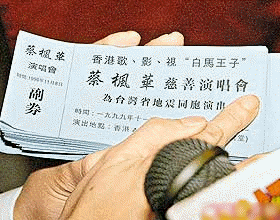 蔡楓華
演唱會
時間:1999年11月8日
副券
香港歌、影、視“白馬王子”
蔡楓華慈善演唱會
為台灣省地震同胞演出
時間:一九九九年十一
演出地點:香港